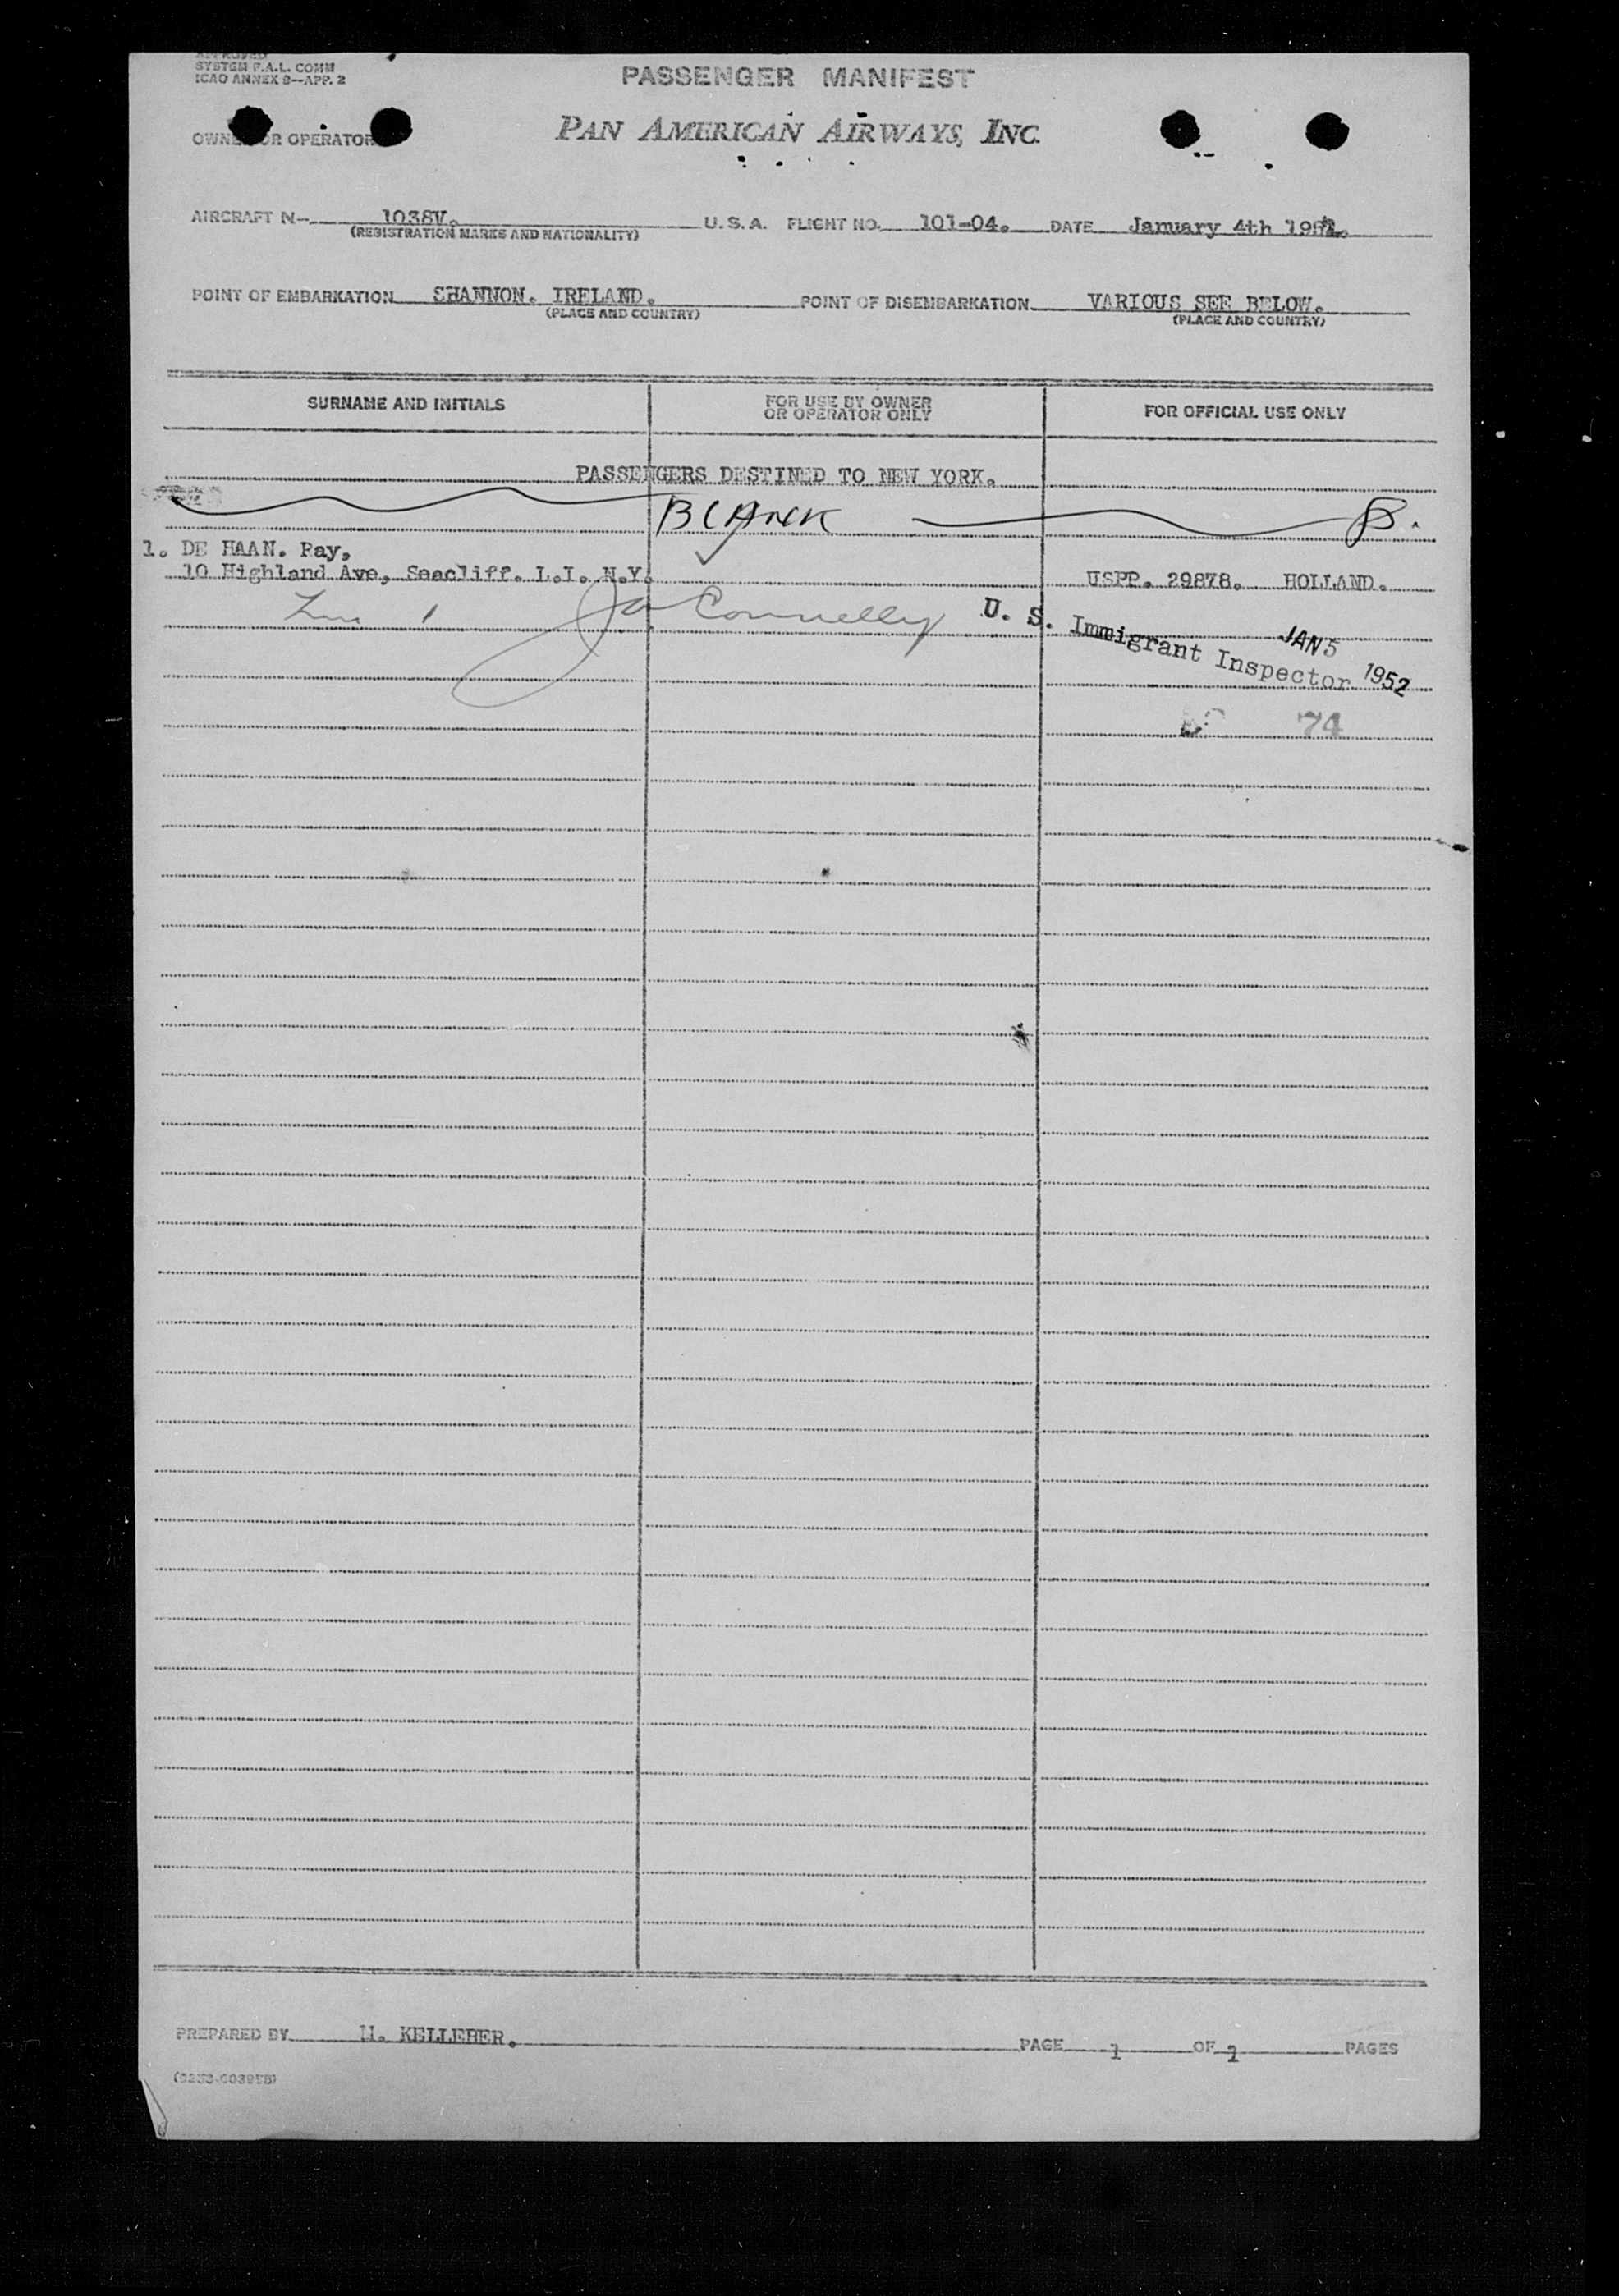 APPROVED
SYSTEM F.A.L. COMM
ICAO ANNEX 9—APP. 2
PASSENGER MANIFEST
OWNER OR OPERATOR
PAN AMERICAN AIRWAYS, INC.
AIRCRAFT N— 1038V. U.S.A. FLIGHT NO. 101-04. DATE January 4th 1952.
(REGISTRATION MARKS AND NATIONALITY)
POINT OF EMBARKATION SHANNON. IRELAND. POINT OF DISEMBARKATION VARIOUS SEE BELOW.
(PLACE AND COUNTRY) (PLACE AND COUNTRY)
SURNAME AND INITIALS FOR USE BY OWNER OR OPERATOR ONLY FOR OFFICIAL USE ONLY
PASSENGERS DESTINED TO NEW YORK.
BLANK
1. DE HAAN. Ray,
10 Highland Ave, Seacliff. L.I. N.Y. USPP. 29878. HOLLAND.
Connelly U. S. Immigrant Inspector JAN 5 1952
74
PREPARED BY M. KELLEHER. PAGE 1 OF 1 PAGES